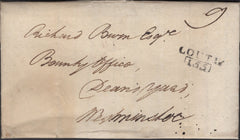 9
Richard Burn Esqr
LOUTH
Bounty Office,
Deans Yard,
Westminster